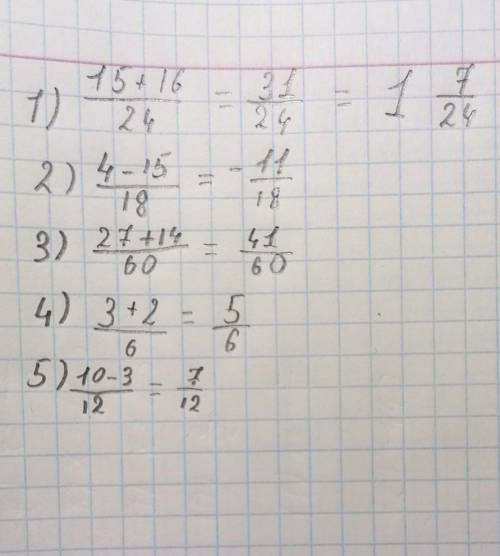 1) (15+16)/24 = 31/24 = 1 7/24
2) (4-15)/18 = -11/18
3) (27+14)/60 = 41/60
4) (3+2)/6 = 5/6
5) (10-3)/12 = 7/12